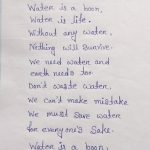 Water is a boon,
Water is life.
Without any water,
Nothing will survive.
We need water and
earth needs too.
Don't waste water,
We can't make mistake
We must save water
for everyone's sake.
Water is a boon;